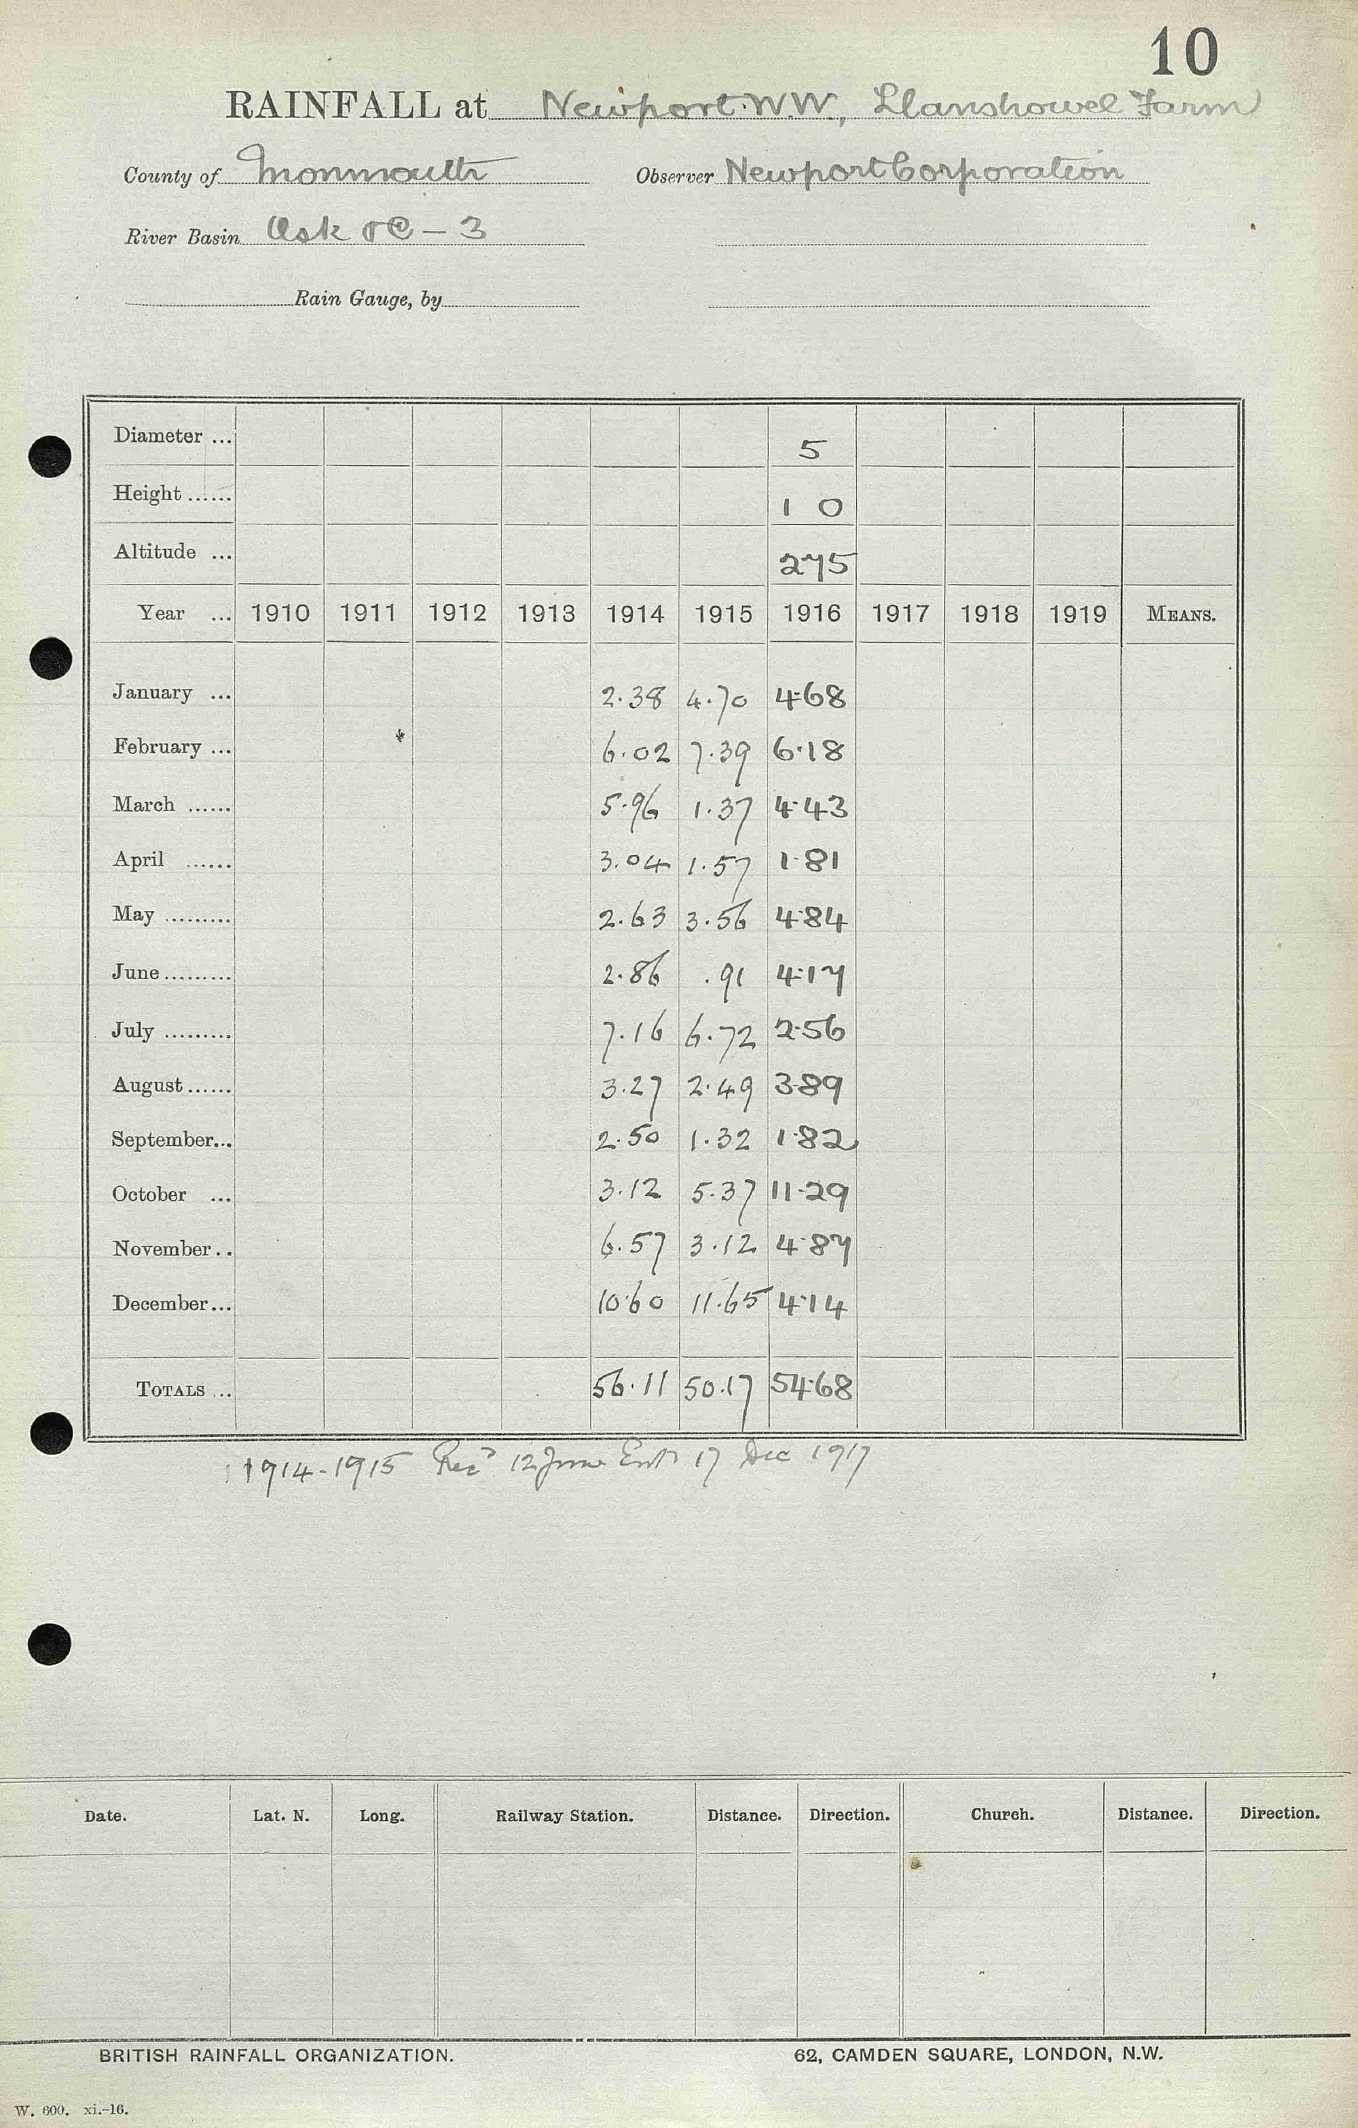 10
RAINFALL at Newport W.W., Llanshowel Farm
County of Monmouth Observer Newport Corporation
River Basin - 3
Rain Gauge, by
Diameter ... 5
Height ...... 1 0
Altitude ... 275
Year ... 1910 1911 1912 1913 1914 1915 1916 1917 1918 1919 MEANS.
January ... 2.38 4.70 4.68
February ... 6.02 7.39 6.18
March ...... 5.96 1.37 4.43
April ...... 3.04 1.57 1.81
May ......... 2.63 3.56 4.84
June ......... 2.86 .91 4.17
July ......... 7.16 6.72 2.56
August ...... 3.27 2.49 3.89
September... 2.50 1.32 1.82
October ... 3.12 5.37 11.29
November.. 6.57 3.12 4.87
December... 10.60 11.65 4.14
TOTALS ... 56.11 50.17 54.68
1914-1915 Recd 12 June Entd 17 Dec 1917
Date. Lat. N. Long. Railway Station. Distance. Direction. Church. Distance. Direction.
BRITISH RAINFALL ORGANIZATION. 62, CAMDEN SQUARE, LONDON, N.W.
W. 600. xi.-16.